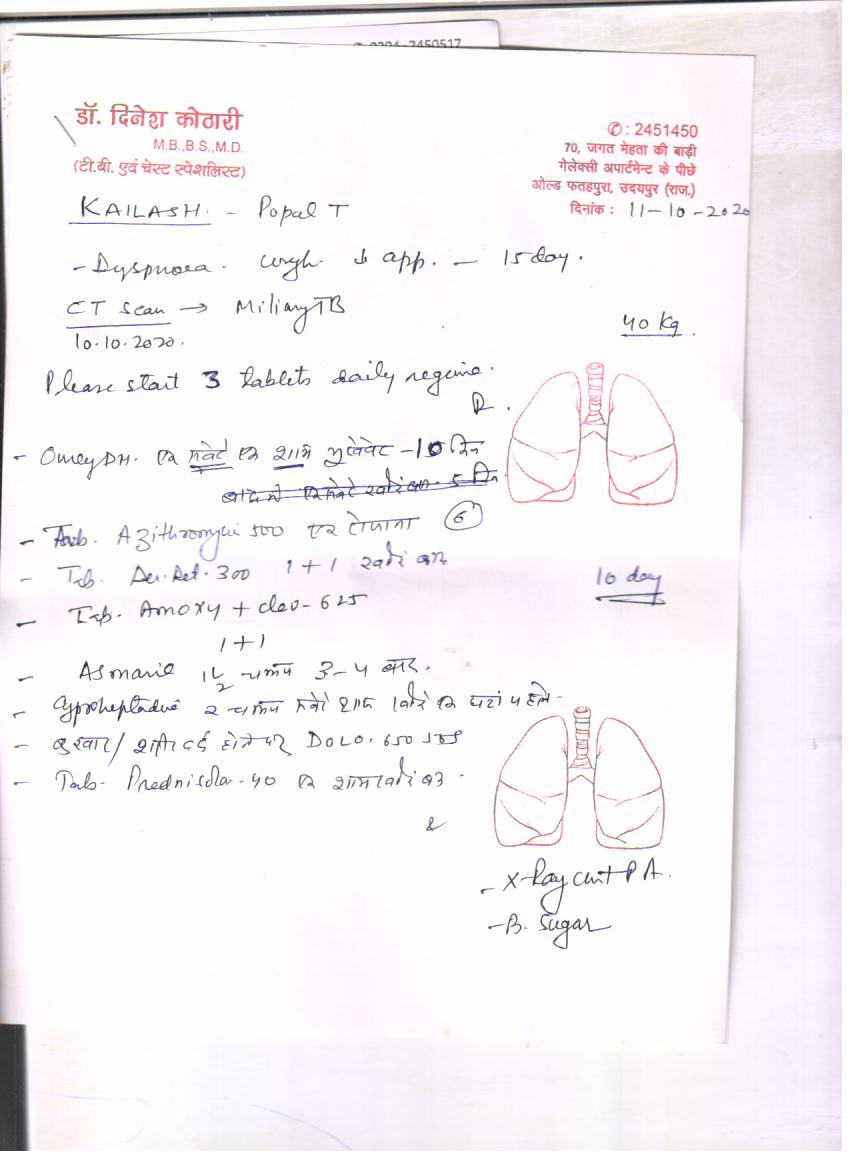 0294-2450517
डॉ. दिनेश कोठारी
M.B.,B.S.,M.D.
(टी.बी. एवं चेस्ट स्पेशलिस्ट)
✆: 2451450
70, जगत मेहता की बाड़ी
गेलेक्सी अपार्टमेन्ट के पीछे
ओल्ड फतहपुरा, उदयपुर (राज.)
दिनांक : 11-10-2020
KAILASH. - Popal T
- Dyspnoea. cough. ↓ app. - 15 day.
CT Scan → Miliary TB
10.10.2020.
40 Kg.
Please start 3 tablets daily regime.
R.
- Omey DM. एक सवेरे एक शाम - 10 दिन
5 दिन
- Tab. Azithromycin 500 एक रोजाना 6
- Tab. 300 1+1
10 day
- Tab. Amoxy + clav - 625
1+1
- 1½ चम्मच 3-4 बार.
- Cyproheptadine 2 चम्मच सवेरे शाम घंटा पहले -
- बुखार/ दर्द होने पर DOLO-650
- Tab- Prednisolo-40 एक शाम
- X-Ray chest PA.
- B. Sugar